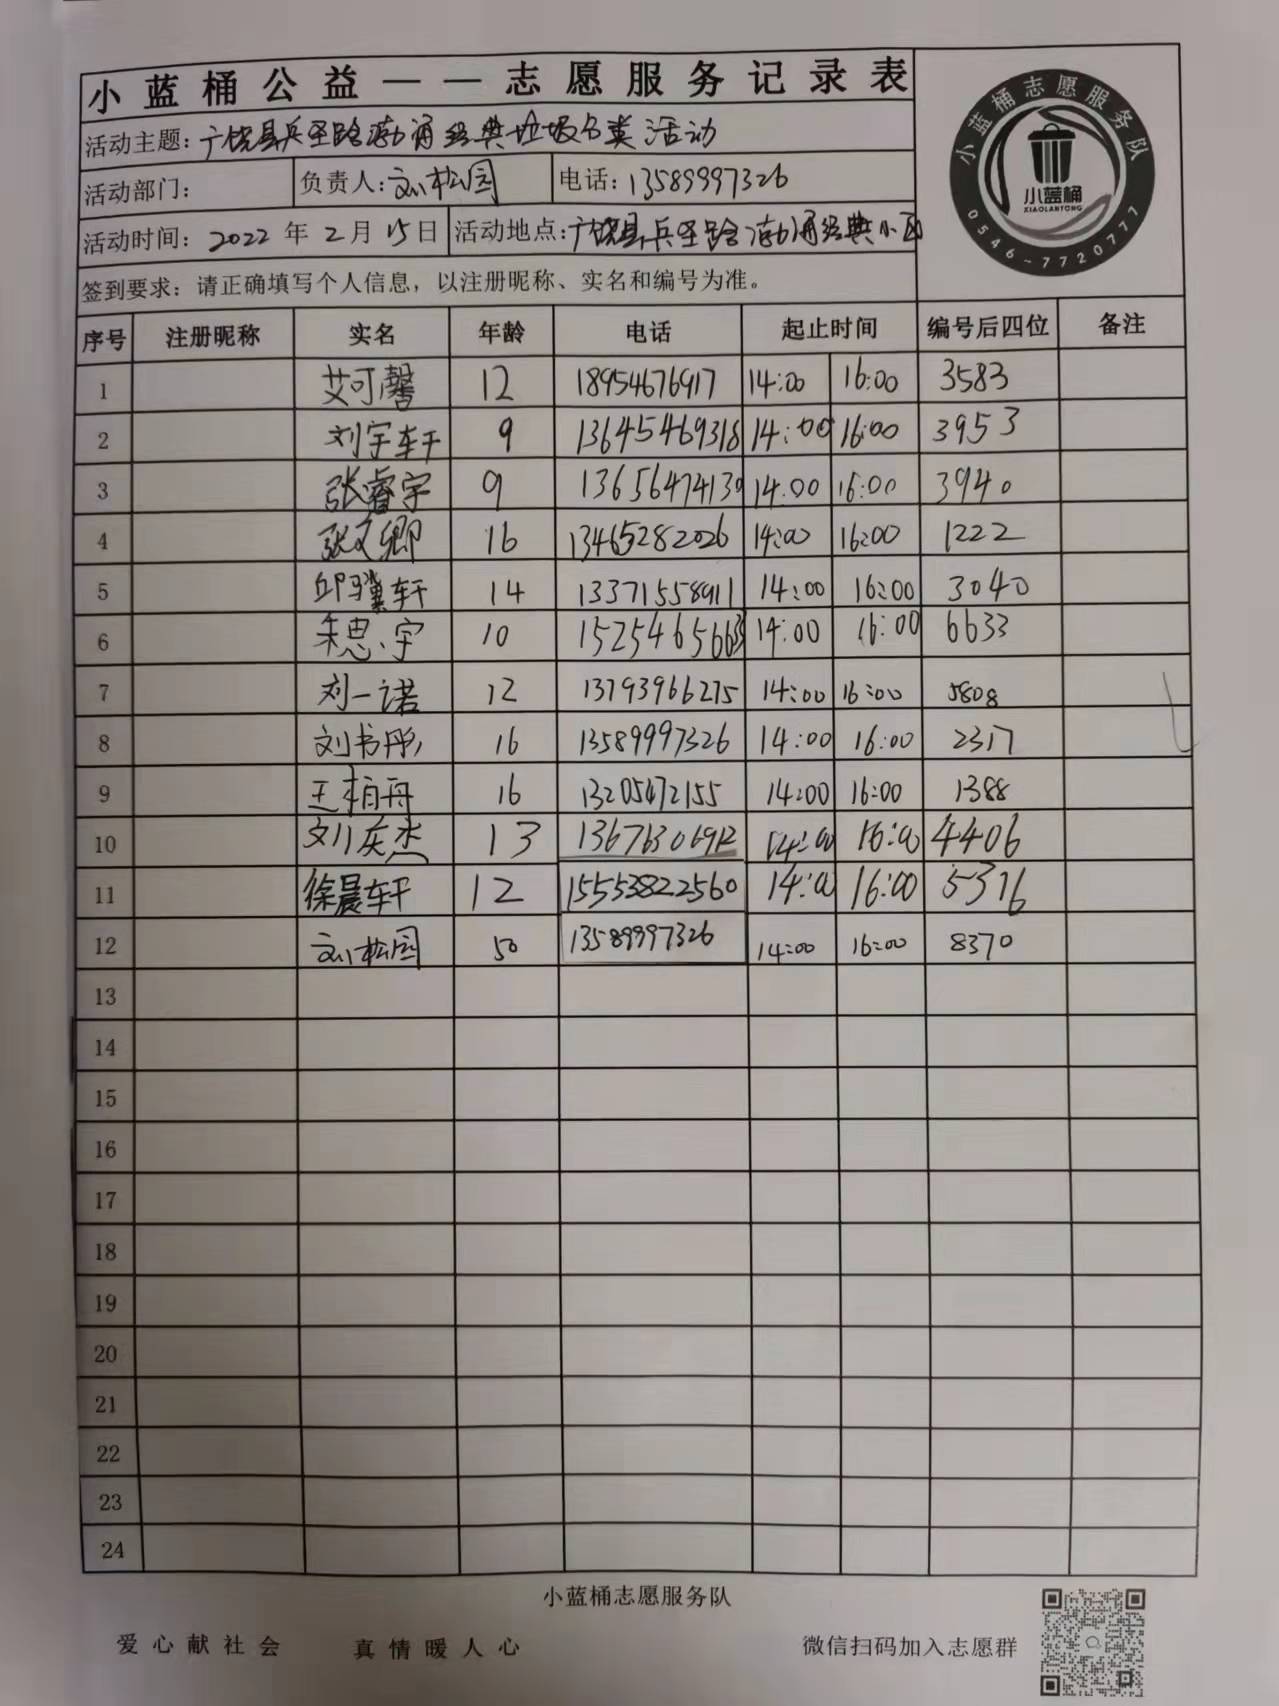 小蓝桶公益——志愿服务记录表
活动主题: 广饶县兵圣路渤通经典垃圾分类活动
活动部门: 负责人: 刘松园 电话: 13589997326
活动时间: 2022年2月15日 活动地点: 广饶县兵圣路渤通经典小区
签到要求: 请正确填写个人信息, 以注册昵称、实名和编号为准。
小蓝桶志愿服务队
小蓝桶
XIAOLANTONG
0546-7720777
序号 注册昵称 实名 年龄 电话 起止时间 编号后四位 备注
1 艾可馨 12 18954676917 14:00 16:00 3583
2 刘宇轩 9 13645469318 14:00 16:00 3953
3 张睿宇 9 13656474130 14:00 16:00 3940
4 张文卿 16 13465282026 14:00 16:00 1222
5 邱骥轩 14 13371558911 14:00 16:00 3040
6 朱思宇 10 15254656633 14:00 16:00 6633
7 刘一诺 12 13793966275 14:00 16:00 5808
8 刘书彤 16 13589997326 14:00 16:00 2317
9 王柏舟 16 13205472155 14:00 16:00 1388
10 刘庆杰 13 13676306912 14:00 16:00 4406
11 徐晨轩 12 15553822560 14:00 16:00 5376
12 刘松园 50 13589997326 14:00 16:00 8370
13
14
15
16
17
18
19
20
21
22
23
24
小蓝桶志愿服务队
爱心献社会 真情暖人心 微信扫码加入志愿群